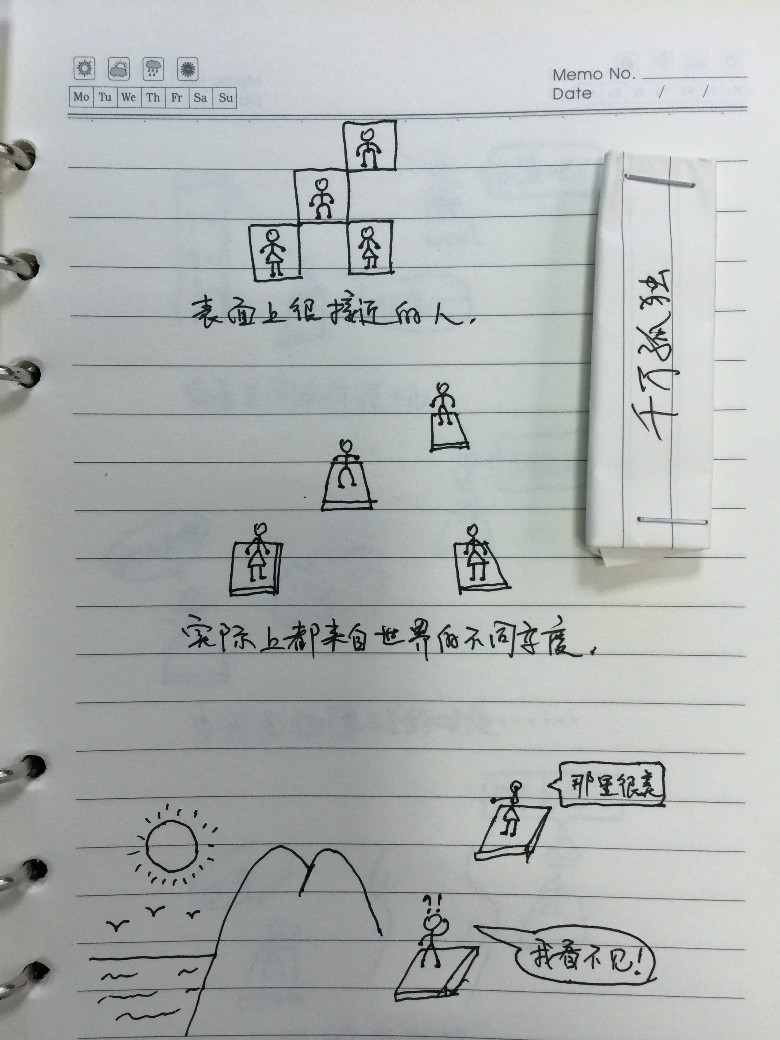 Mo Tu We Th Fr Sa Su
Memo No.
Date / /
表面上很接近的人.
千万孤独
实际上都来自世界的不同度.
那里很美
?!
我看不见!